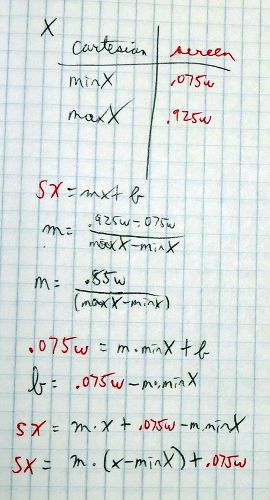 X
cartesian screen
minX .075w
maxX .925w
sx = mx + b
m = .925w - .075w
maxX - minX
m = .85w
(maxX - minX)
.075w = m·minX + b
b = .075w - m·minX
sx = m·x + .075w - m·minX
sx = m·(x - minX) + .075w